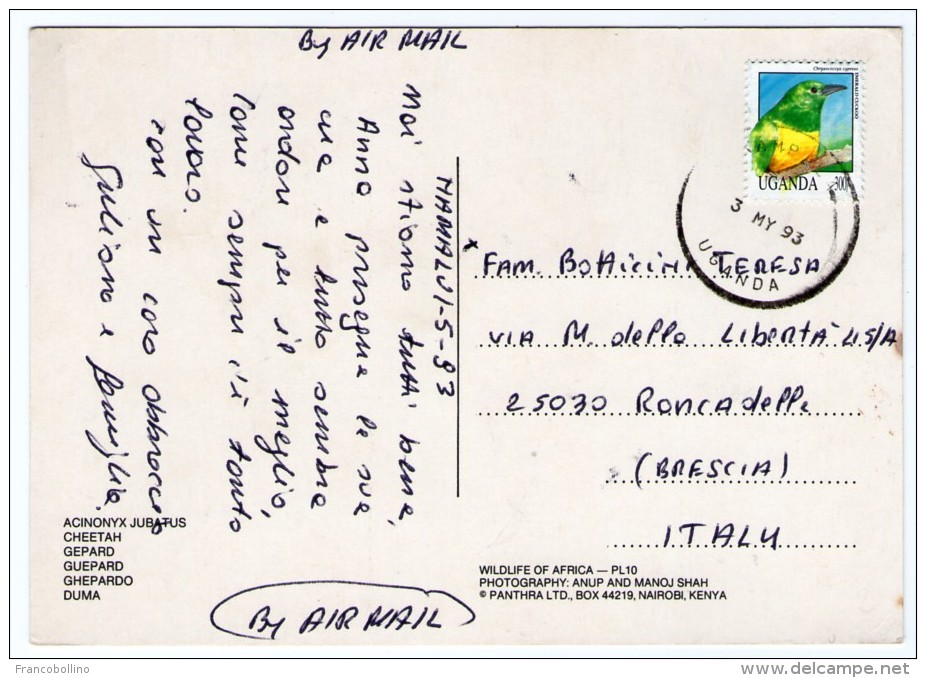 By AIR MAIL
Chrysococcyx cupreus
EMERALD CUCKOO
UGANDA
300/-
3 MY 93
UGANDA
NAMALU 1-5-93
Noi stiamo tutti bene,
Anna prosegue le sue
cure e tutto sembra
andare per il meglio,
come sempre c'è tanto
lavoro.
con un caro abbraccio
Giuliano e famiglia.
x FAM. Botticini TERESA
VIA M. della Libertà 45/A
25030 Roncadelle
(BRESCIA)
ITALY
ACINONYX JUBATUS
CHEETAH
GEPARD
GUEPARD
GHEPARDO
DUMA
WILDLIFE OF AFRICA — PL10
PHOTOGRAPHY: ANUP AND MANOJ SHAH
© PANTHRA LTD., BOX 44219, NAIROBI, KENYA
By AIR MAIL
Francobollino
delcampe.net